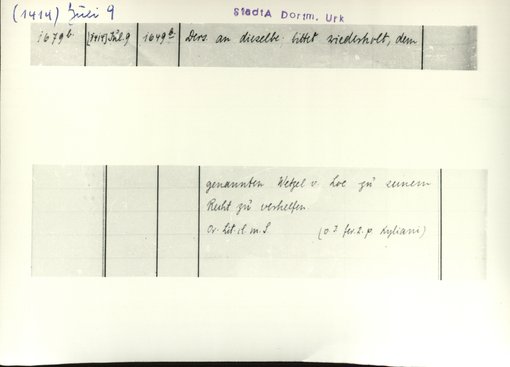 (1414) Juli 9
StadtA Dortm. Urk
1679b (1414) Jul. 9 1649a Ders. an dieselbe: bittet wiederholt, dem
genannten Wetzel v. Loe zu seinem
Recht zu verhelfen
Or. Lit. cl. m. S. (o J fer. 2. p. Kyliani)